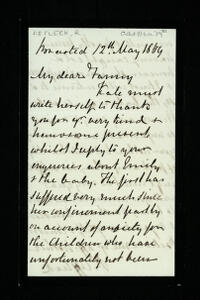 Bonsated 12th May 1869
My dear Fanny
Kate must
write herself to thank
you for yr very kind &
handsome present
whilst I reply to your
enquiries about Emily
& the baby. The first has
suffered very much since
her confinement partly
on account of anxiety for
the Children who have
unfortunately not been